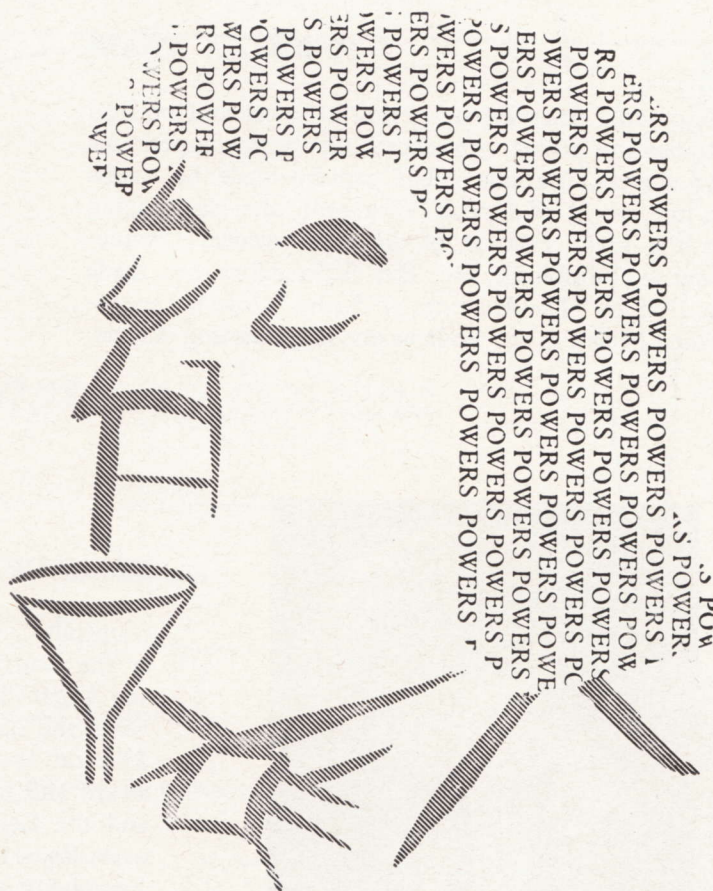 S POW
RS POWER
ERS POWERS POWERS POWERS POWERS
ERS POWERS POWERS POWERS POWERS POW
RS POWERS POWERS POWERS POWERS POWERS
POWERS POWERS POWERS POWERS POWERS PO
OWERS POWERS POWERS POWERS POWERS POWE
ERS POWERS POWERS POWERS POWERS POWERS
S POWERS POWERS POWERS POWERS POWERS P
POWERS POWERS POWERS POWERS POWERS
WERS POWERS POWERS PO
ERS POWERS PO
POWERS P
WERS POW
ERS POWER
S POWERS
POWERS P
OWERS PO
WERS POW
RS POWER
POWERS
WERS POW
POWER
OWER